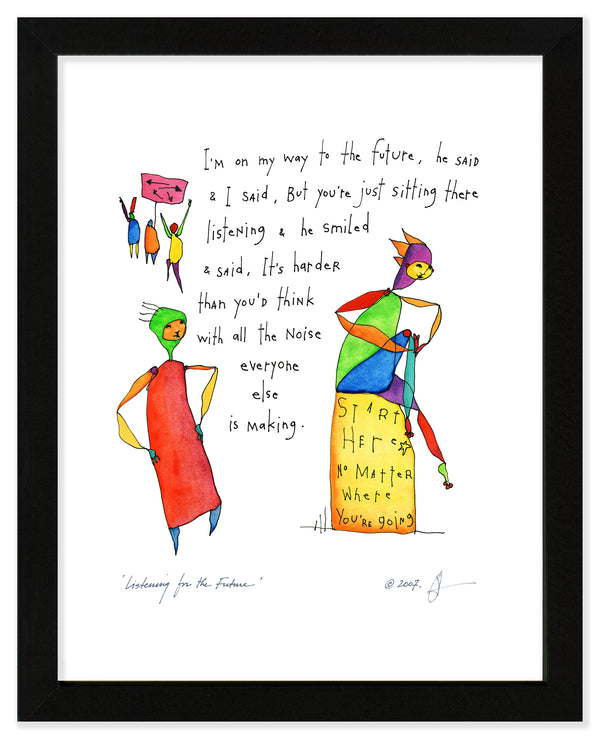 I'm on my way to the future, he said
& I said, But you're just sitting there
listening & he smiled
& said, It's harder
than you'd think
with all the noise
everyone
else
is making.
Start
Here
No Matter
Where
You're going
"Listening for the Future"
© 2007.